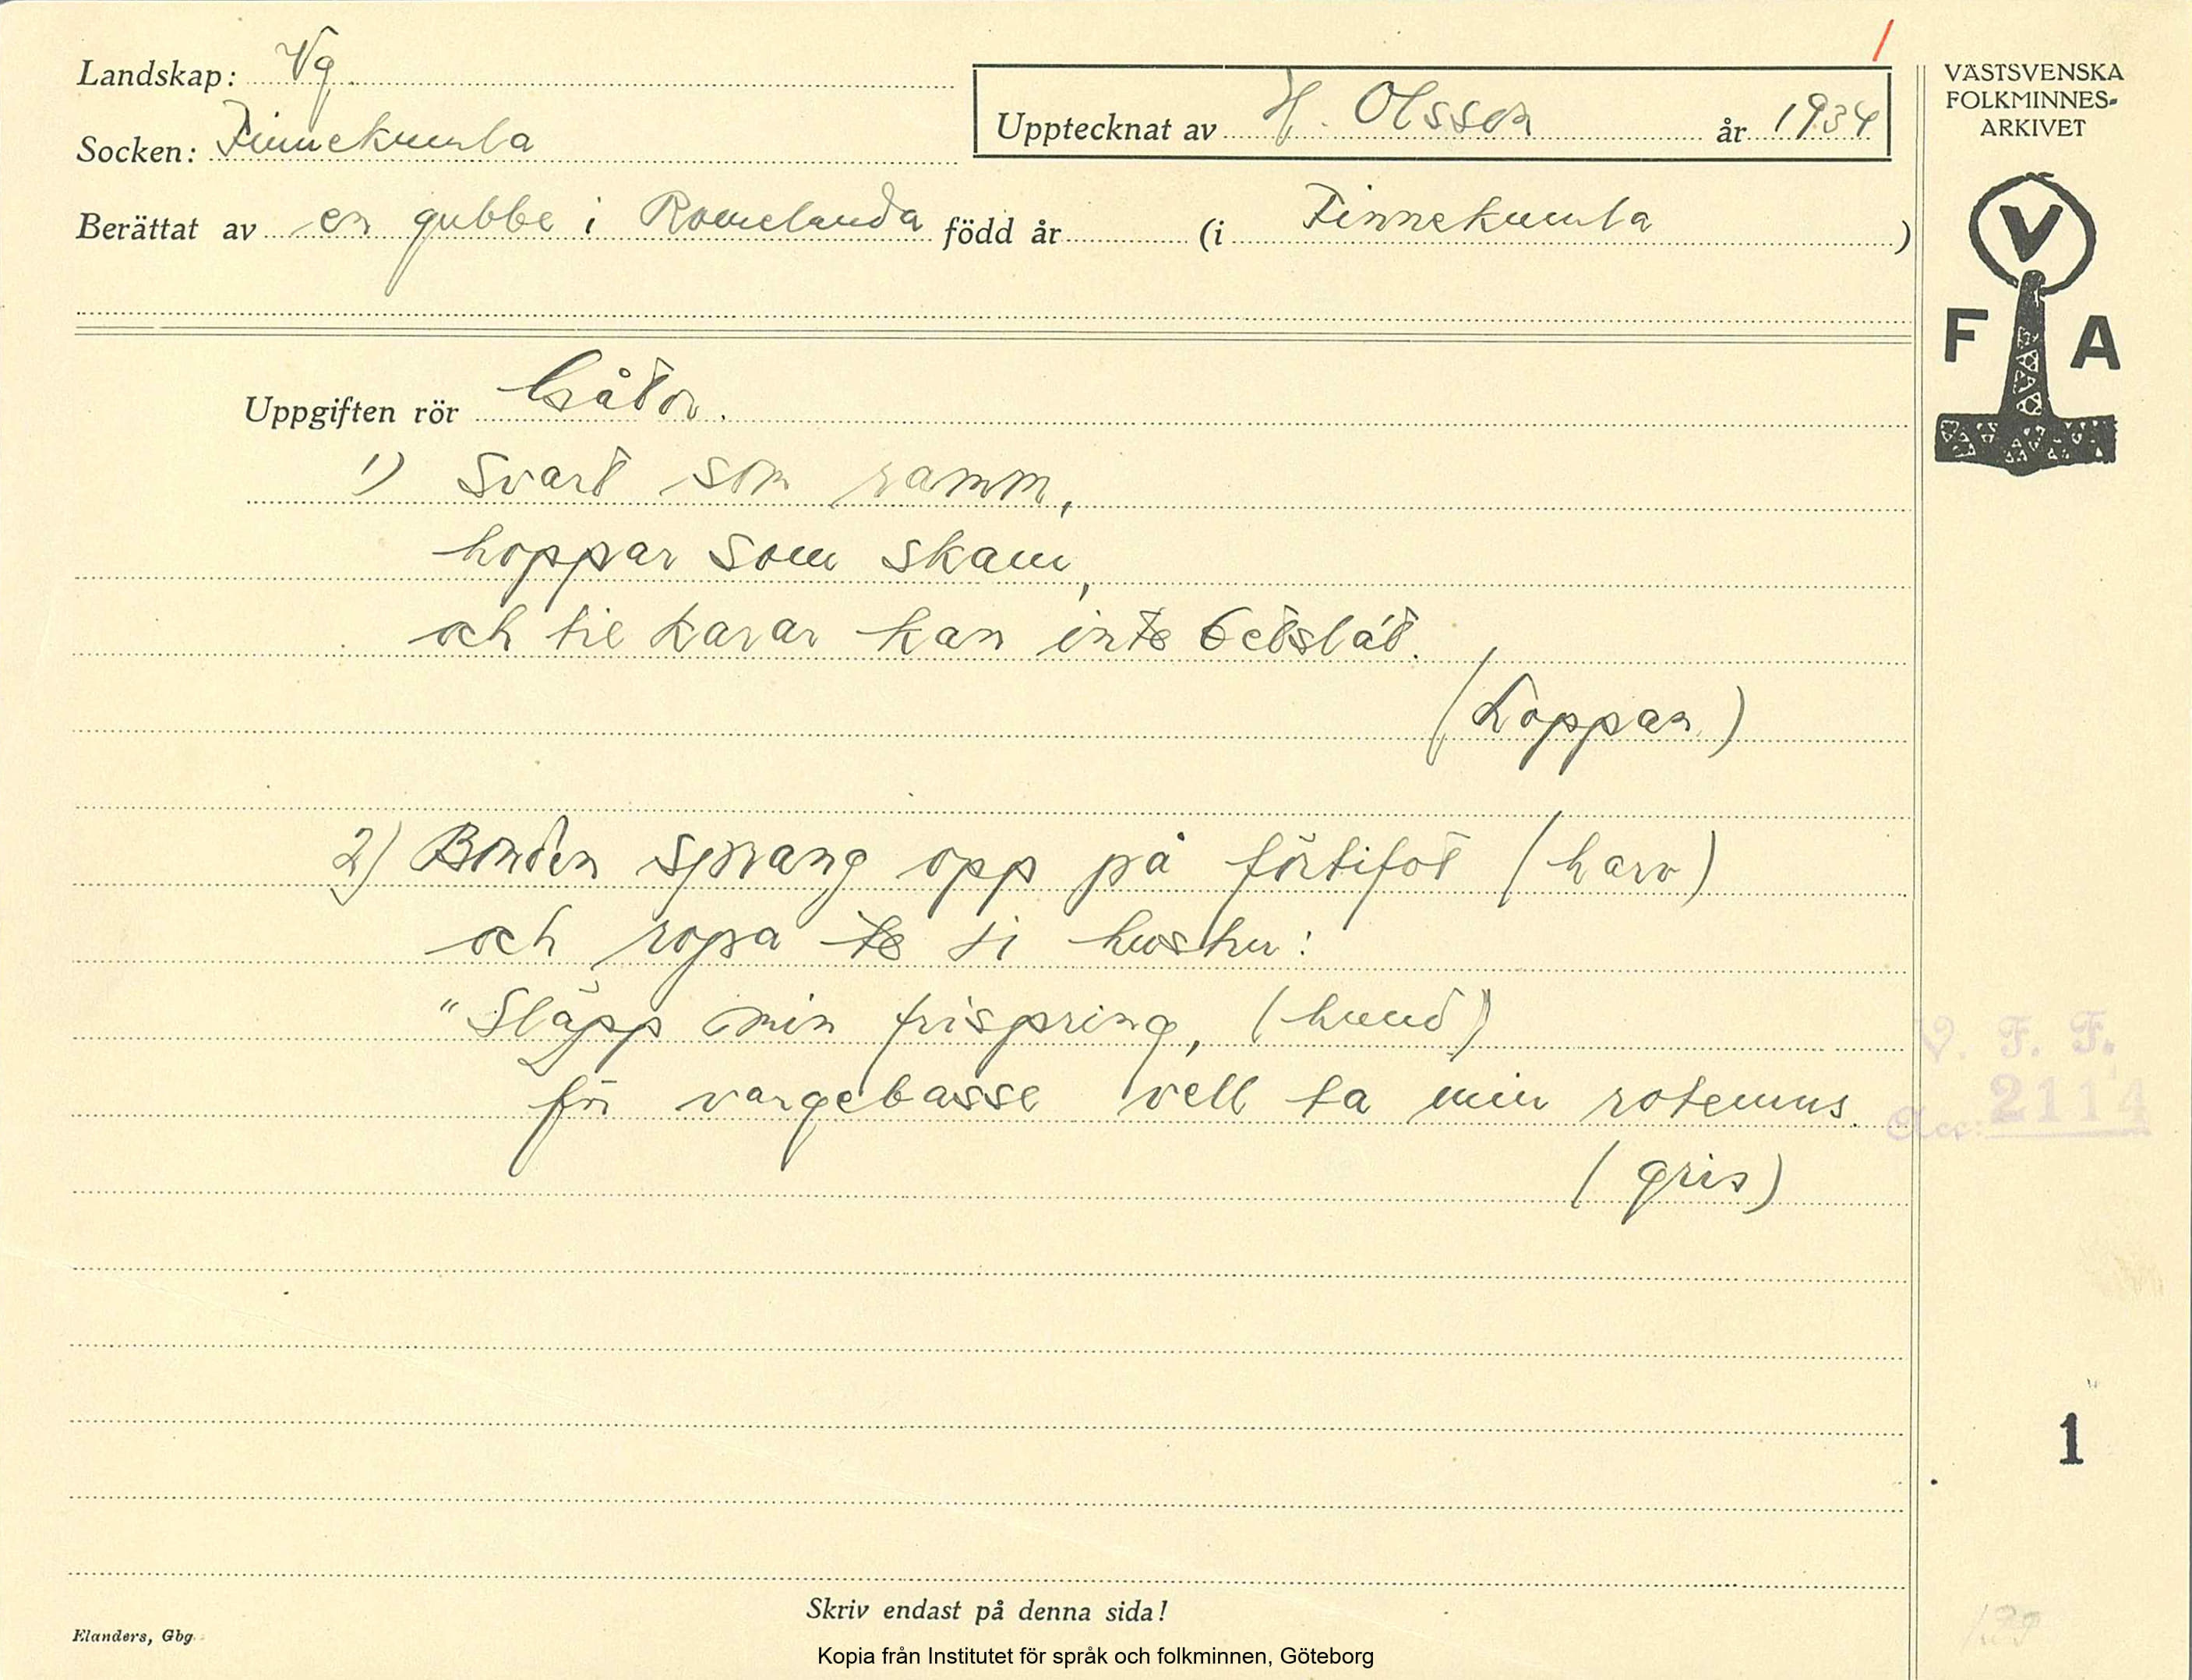 Landskap: Vg.
Socken: Finnekumla
Upptecknat av H. Olsson år 1934
Berättat av en gubbe i Romelanda född år (i Finnekumla)
VÄSTSVENSKA
FOLKMINNES-
ARKIVET
V
F A
Uppgiften rör Gåtor.
1) Svart som ramm,
hoppar som skam,
och tie karar kan inte
(Loppan)
2) Bonden sprang opp på förtifot (harv)
och ropa te si hustru:
"Släpp min frispring, (hund)
för vargebasse vell ta min rotemus.
(gris)
V. F. F.
Acc: 2114
1
Skriv endast på denna sida!
Elanders, Gbg.
Kopia från Institutet för språk och folkminnen, Göteborg